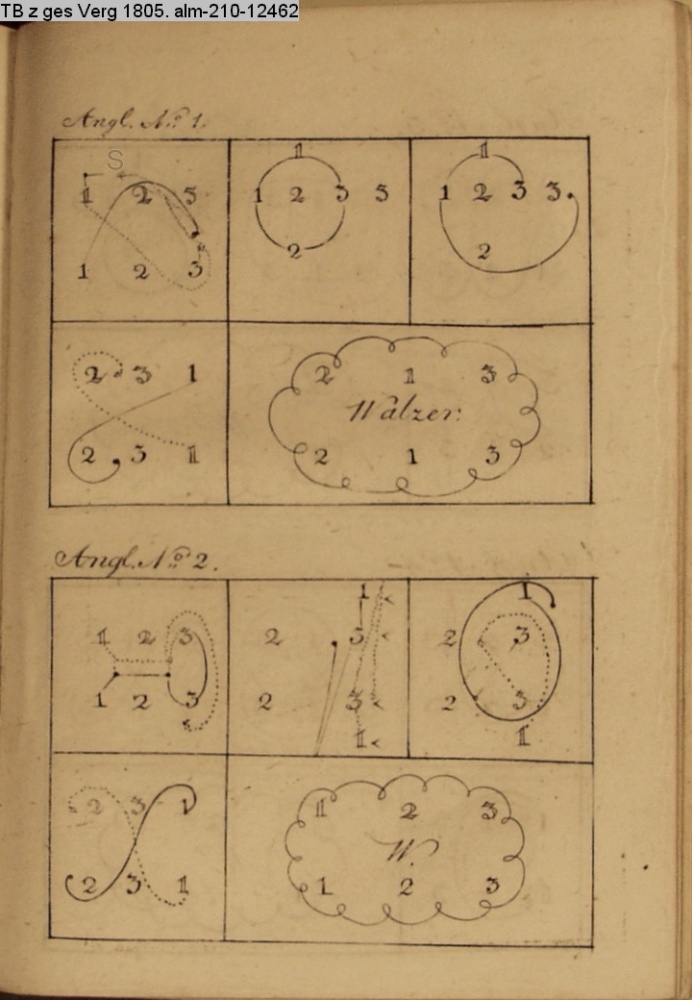 TB z ges Verg 1805. alm-210-12462
Angl. No. 1.
S
1 2 3
1 2 3
1
1 2 3 3
2
1
1 2 3 3
2
2 3 1
2 3 1
2 1 3
Walzer.
2 1 3
Angl. No. 2.
1 2 3
1 2 3
1
2 3
2 3
1
1
2 3
2 3
1
2 3 1
2 3 1
1 2 3
W.
1 2 3